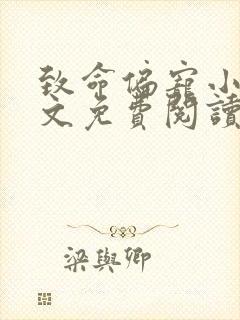 致命偏寵小
文免費閱讀
梁與卿